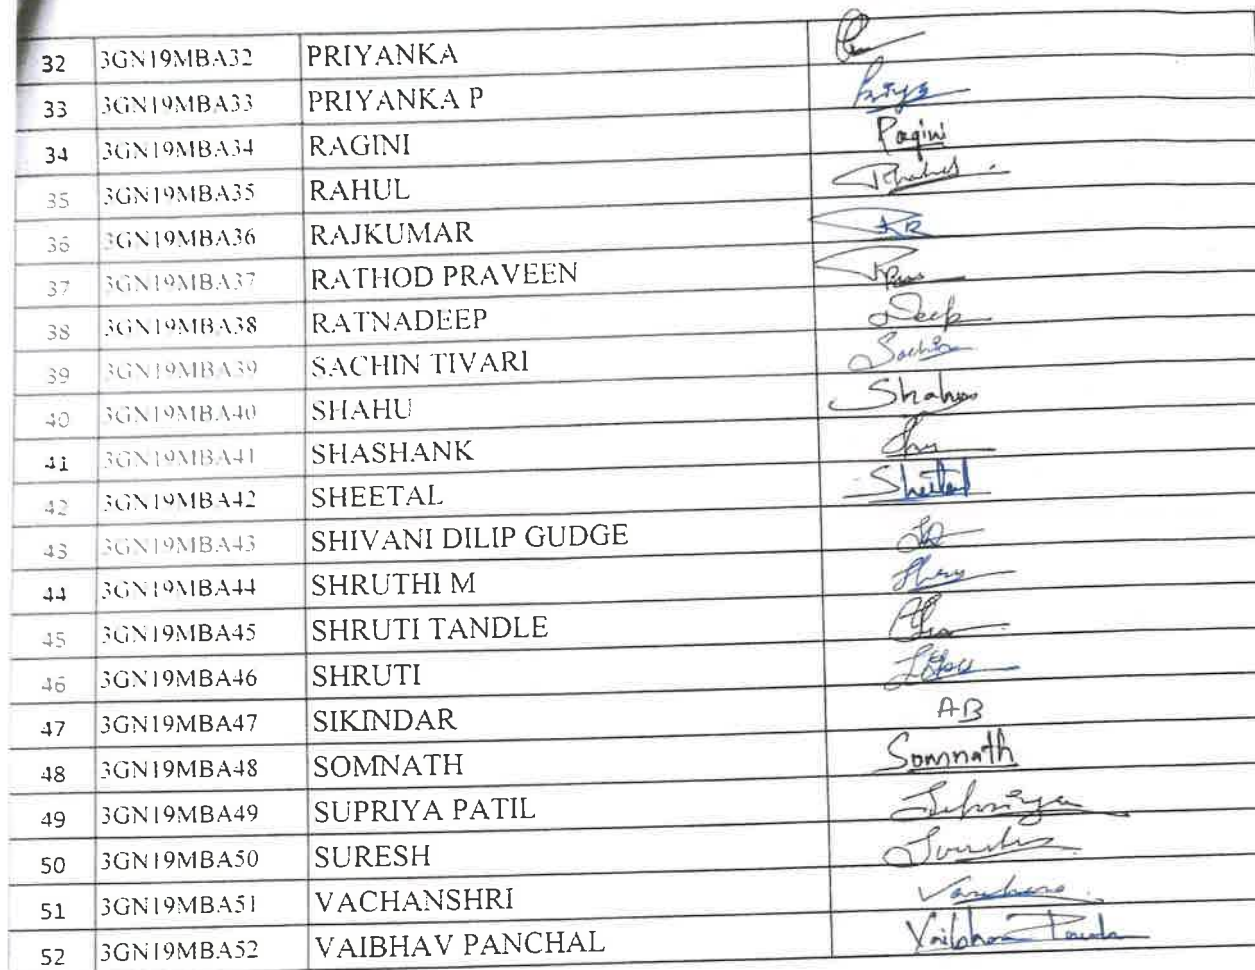 32 3GN19MBA32 PRIYANKA
33 3GN19MBA33 PRIYANKA P Priya
34 3GN19MBA34 RAGINI Ragini
35 3GN19MBA35 RAHUL
36 3GN19MBA36 RAJKUMAR
37 3GN19MBA37 RATHOD PRAVEEN
38 3GN19MBA38 RATNADEEP Deep
39 3GN19MBA39 SACHIN TIVARI Sachin
40 3GN19MBA40 SHAHU
41 3GN19MBA41 SHASHANK
42 3GN19MBA42 SHEETAL Sheetal
43 3GN19MBA43 SHIVANI DILIP GUDGE
44 3GN19MBA44 SHRUTHI M
45 3GN19MBA45 SHRUTI TANDLE
46 3GN19MBA46 SHRUTI
47 3GN19MBA47 SIKINDAR AB
48 3GN19MBA48 SOMNATH Somnath
49 3GN19MBA49 SUPRIYA PATIL
50 3GN19MBA50 SURESH
51 3GN19MBA51 VACHANSHRI
52 3GN19MBA52 VAIBHAV PANCHAL